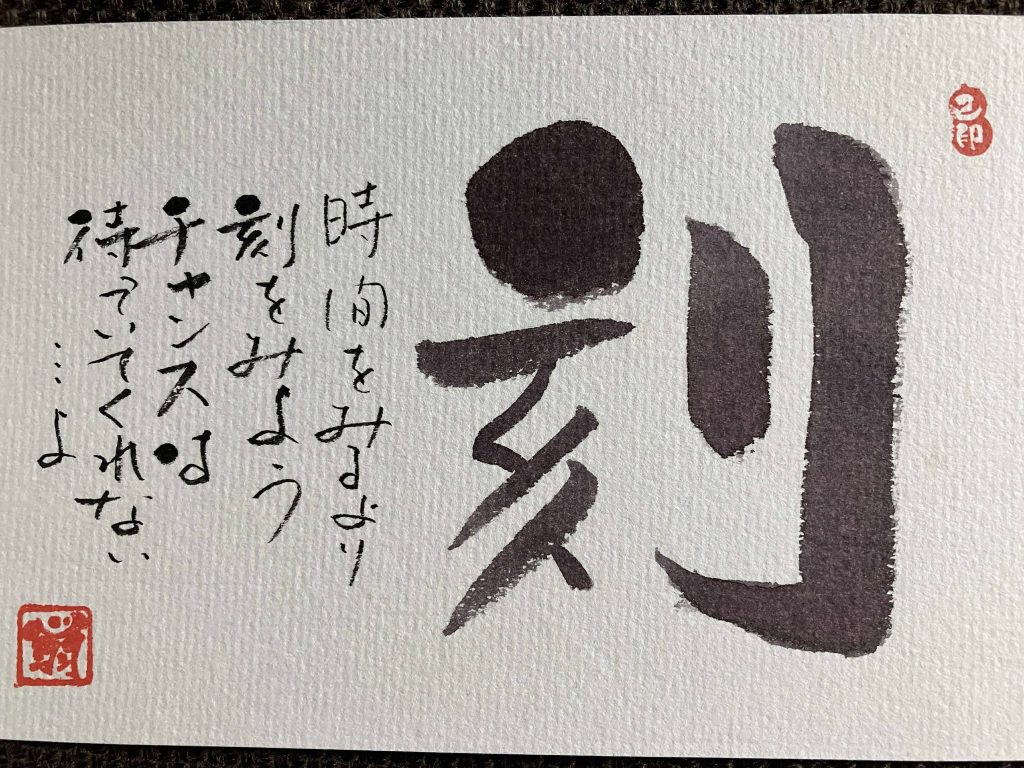 刻
時間をみるより
刻をみよう
チャンスは
待っていてくれない
…よ